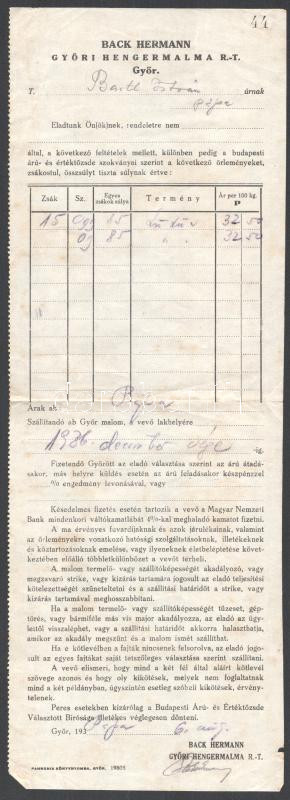 44
BACK HERMANN
GYŐRI HENGERMALMA R.-T.
Győr.
T. Barth István úrnak
Pápa
Eladtunk Önjök(nek, rendeletre nem
által, a következő feltételek mellett, különben pedig a budapesti
árú- és értéktőzsde szokványai szerint a következő őrleményeket,
zsákostul, összsúlyt tiszta súlynak értve:
Zsák Sz. Egyes zsákok súlya Termény Ár per 100 kg. P
15 0gg 85 32 50
0g 85 " " 32 50
Árak ab Pápa
Szállítandó ab Győr malom, a vevő lakhelyére
1936. december vége -ig
Fizetendő Győrött az eladó választása szerint az árú átadá-
sakor, más helyre küldés esetén az árú feladásakor készpénzzel
% engedmény levonásával, vagy
Késedelmes fizetés esetén tartozik a vevő a Magyar Nemzeti
Bank mindenkori váltókamatlábát 4%-kal meghaladó kamatot fizetni.
A ma érvényes fuvardíjaknak és azok járulékainak, valamint
az őrleményekre vonatkozó hatósági szolgáltatásoknak, illetékeknek
és köztartozásoknak emelése, vagy ilyeneknek életbeléptetése következ-
tében előálló többletkülönbözet a vevőt terheli.
A malom termelő- vagy szállítóképességét akadályozó, vagy
megzavaró strike, vagy kizárás tartamára jogosult az eladó teljesítési
kötelezettségét szüneteltetni és a szállítási határidőt a strike, vagy
kizárás tartamával meghosszabbítani.
Ha a malom termelő- vagy szállítóképességét tűzeset, géptö-
rés, vagy bármiféle más vis major akadályozza, az eladó az ügy-
lettől visszaléphet, vagy a szállítási határidőt akkorra halaszthatja,
amikor az akadály megszűnt és a malom ismét szállíthat.
Ha e kötlevélben a fajták nincsenek felsorolva, az eladó jogosult
az egyes fajtákat saját tetszőleges választása szerint szállítani.
A vevő elismeri, hogy mind a két fél által aláírt kötlevél
szövege azonos és hogy oly kikötések, melyek nem foglaltatnak
mind a két példányban, úgyszintén esetleg szóbeli kikötések, érvény-
telenek.
Peres esetekben kizárólag a Budapesti Árú- és Értéktőzsde
Választott Bírósága illetékes véglegesen dönteni.
Győr, 193 Pápa 6. aug.
BACK HERMANN
GYŐRI HENGERMALMA R.-T.
PANNONIA KÖNYVNYOMDA, GYŐR. 19805